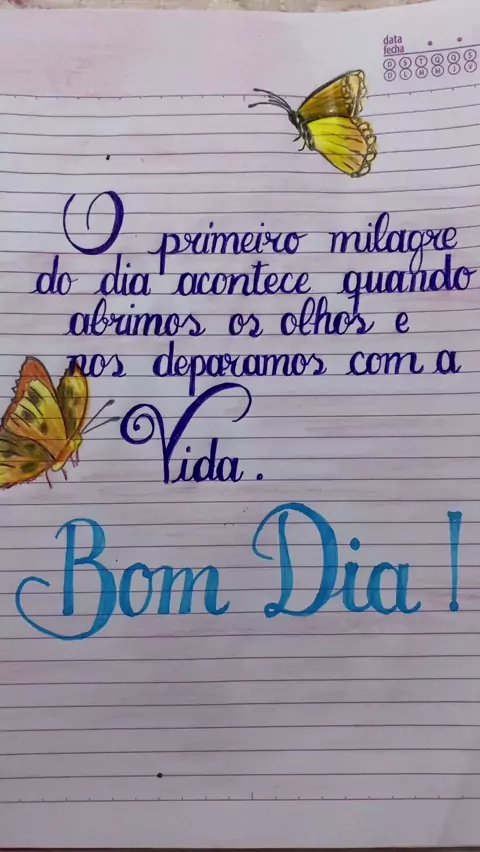 data
fecha
D S T Q Q S
D L M M J V
O primeiro milagre
do dia acontece quando
abrimos os olhos e
nos deparamos com a
Vida.
Bom Dia!